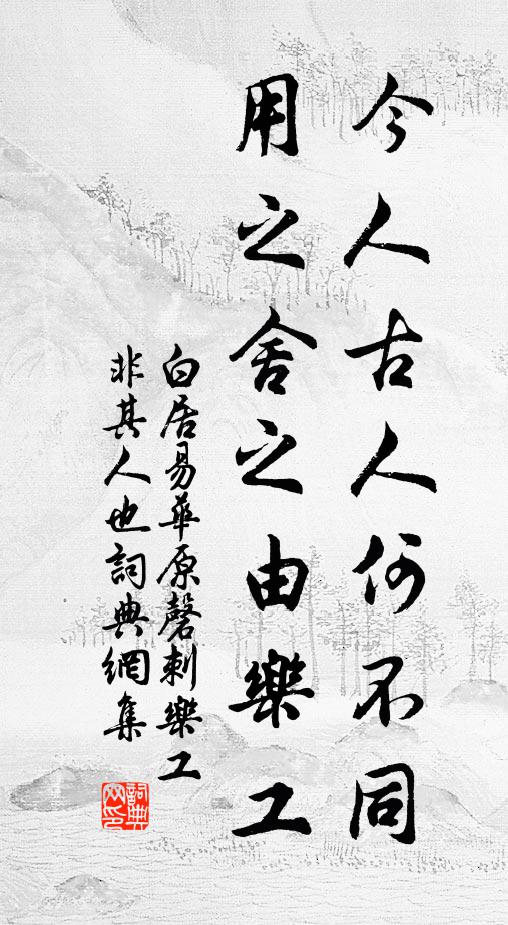 今人古人何不同
用之舍之由樂工
白居易華原磬刺樂工
非其人也詞典網集
詞典
网印